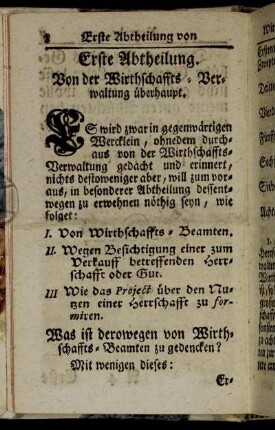 8 Erste Abtheilung von
Erste Abtheilung.
Von der Wirthschaffts-Ver-
waltung überhaupt.
ES wird zwar in gegenwärtigen
Wercklein, ohnedem durch-
aus von der Wirthschaffts-
Verwaltung gedacht und erinnert,
nichts destoweniger aber, will zum vor-
aus, in besonderer Abtheilung dessent-
wegen zu erwehnen nöthig seyn, wie
folget:
I. Von Wirthschaffts-Beamten.
II. Wegen Besichtigung einer zum
Verkauff betreffenden Herr-
schafft oder Gut.
III Wie das Project über den Nu-
tzen einer Herrschafft zu for-
miren.
Was ist derowegen von Wirth-
schaffts-Beamten zu gedencken?
Mit wenigen dieses:
Er-